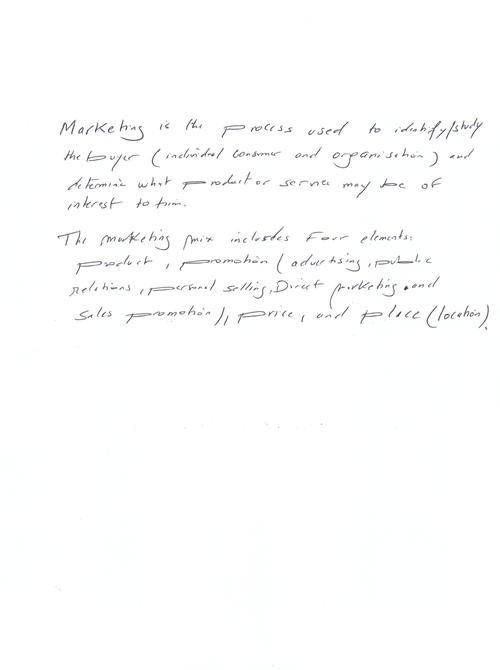 Marketing is the process used to identify/study
the buyer (individual consumer and organisation) and
determine what product or service may be of
interest to him.
The marketing mix includes Four elements:
product, promotion (advertising, public
relations, personal selling, Direct marketing and
sales promotion), price, and place (location).